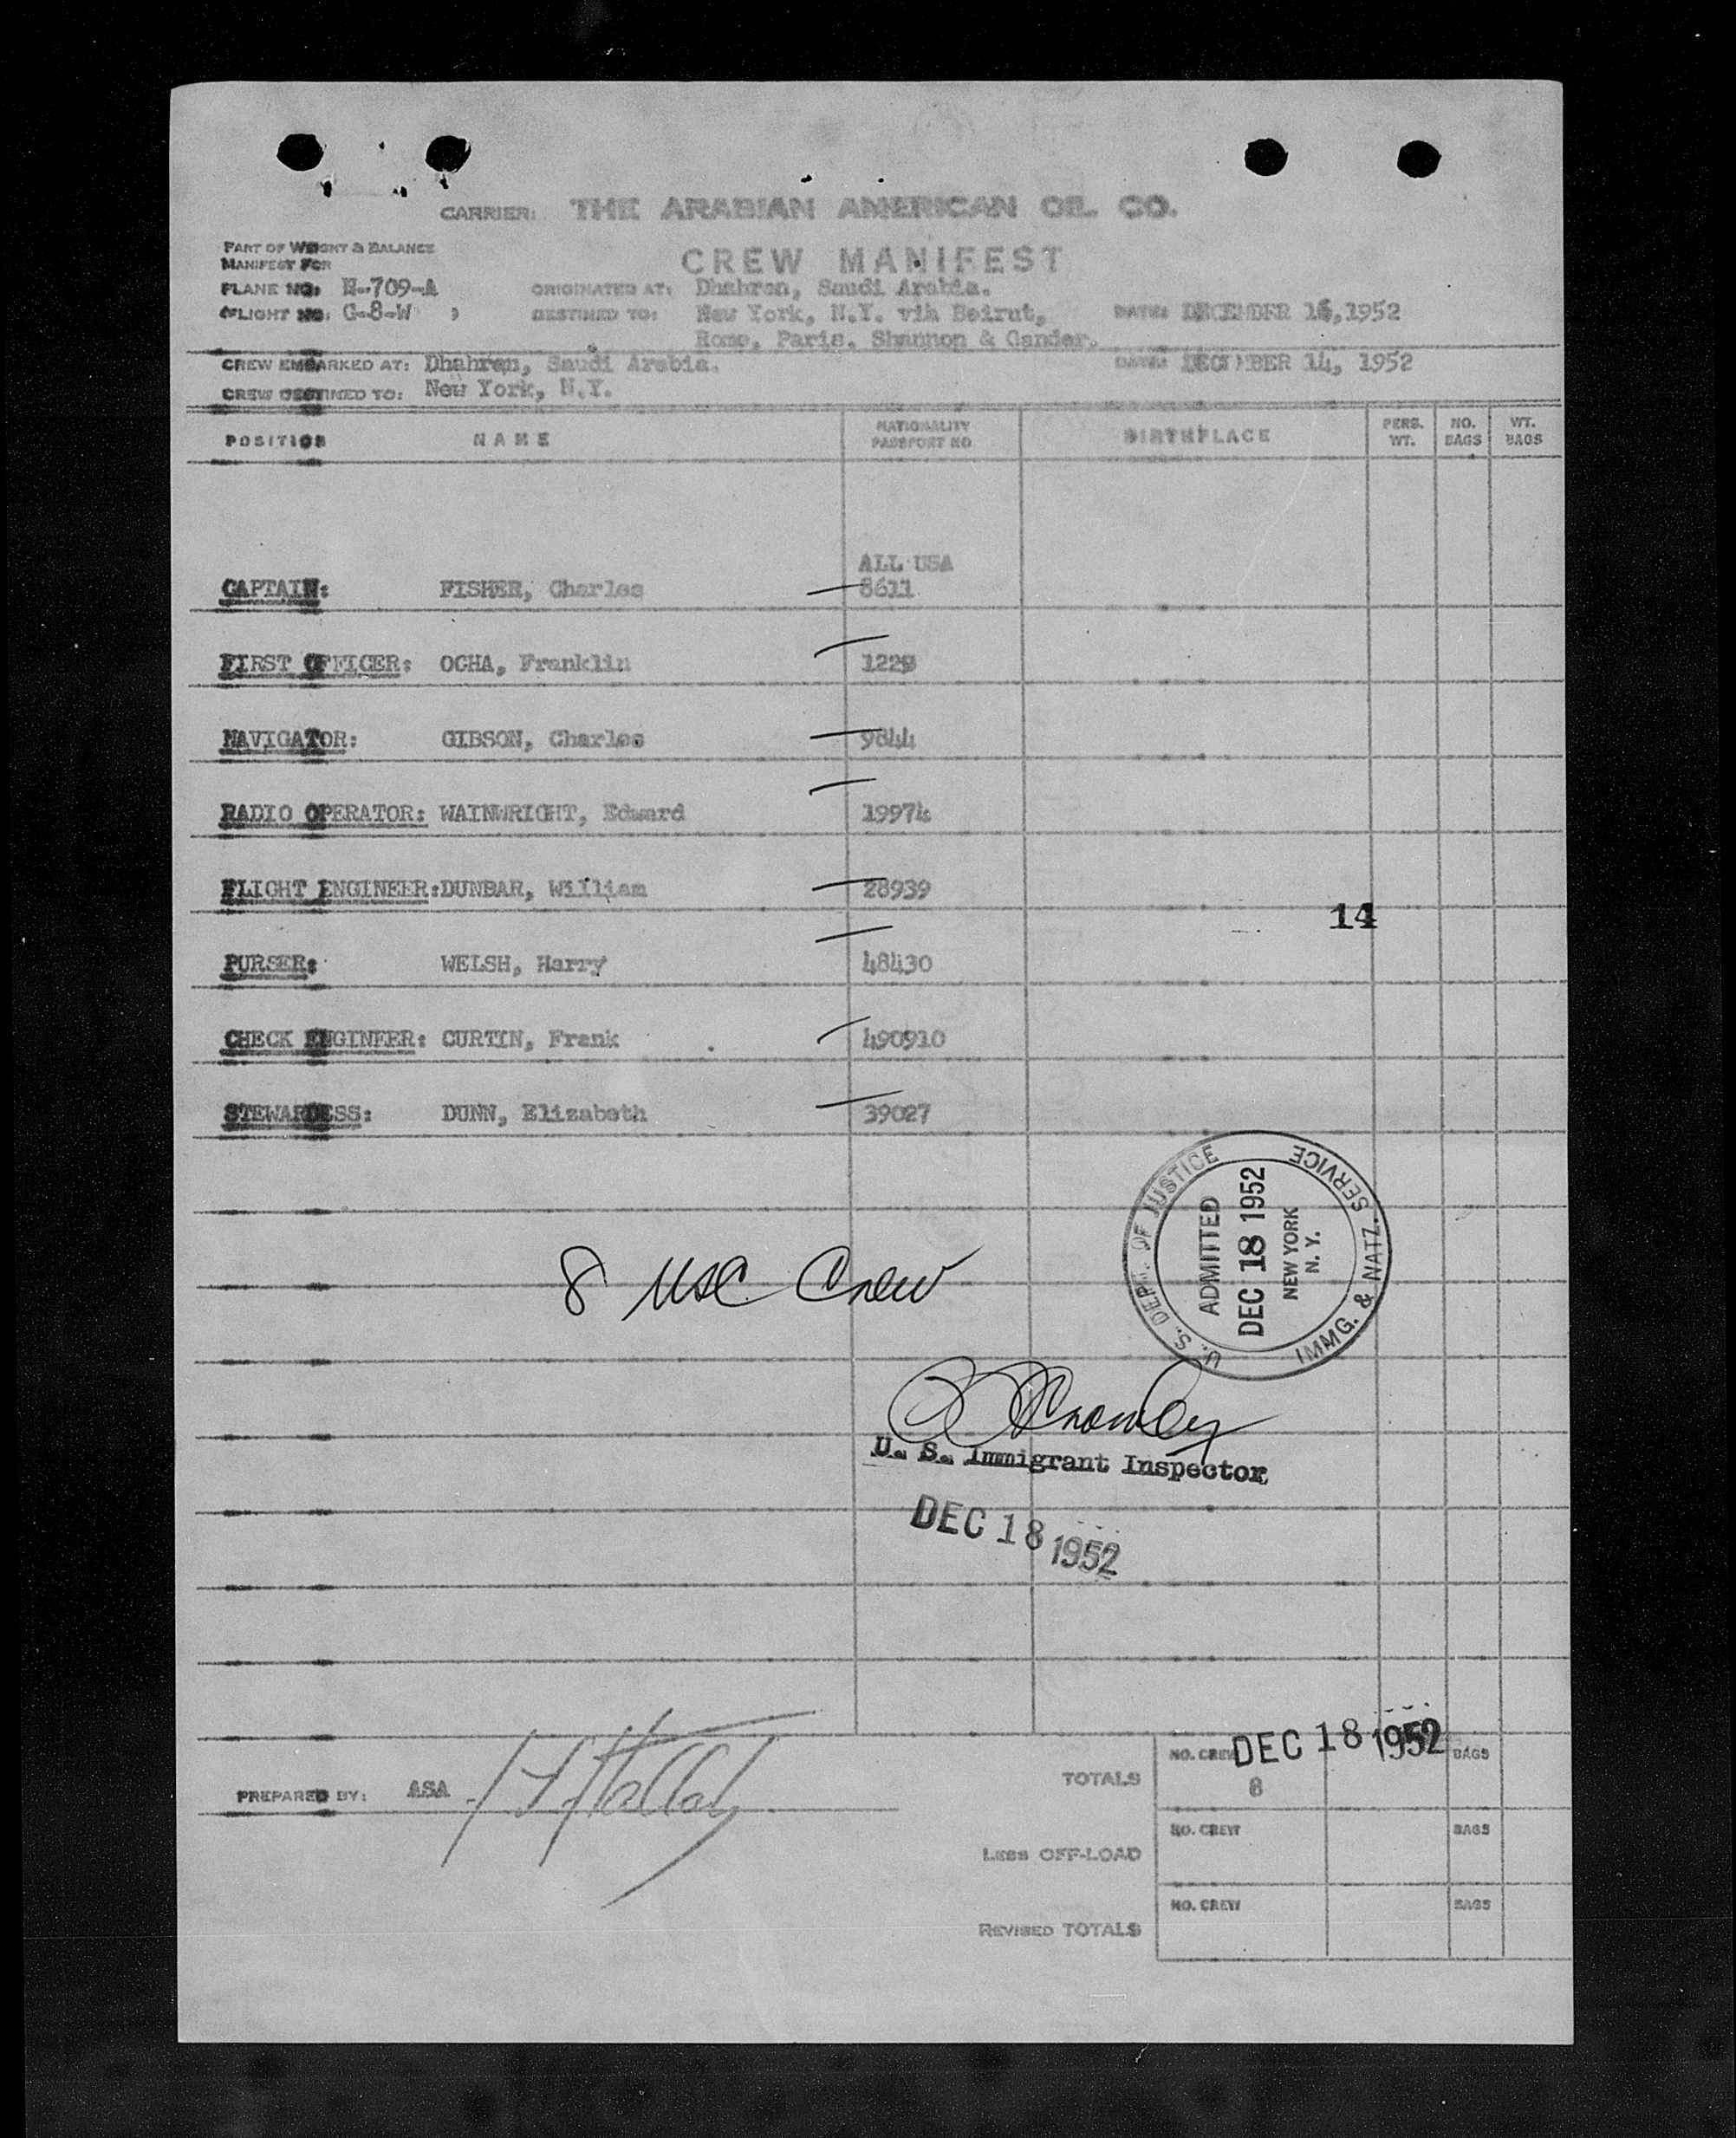 CARRIER: THE ARABIAN AMERICAN OIL CO.
PART OF WEIGHT & BALANCE
MANIFEST FOR
CREW MANIFEST
PLANE NO: N-709-A ORIGINATED AT: Dhahran, Saudi Arabia.
FLIGHT NO: G-8-W DESTINED TO: New York, N.Y. via Beirut, DATE: DECEMBER 16, 1952
Rome, Paris, Shannon & Gander.
CREW EMBARKED AT: Dhahran, Saudi Arabia. DATE: DECEMBER 14, 1952
CREW DESTINED TO: New York, N.Y.
POSITION NAME NATIONALITY PASSPORT NO BIRTHPLACE PERS. WT. NO. BAGS WT. BAGS
ALL USA
CAPTAIN: FISHER, Charles 8611
FIRST OFFICER: OCHA, Franklin 1229
NAVIGATOR: GIBSON, Charles 9844
RADIO OPERATOR: WAINWRIGHT, Edward 19974
FLIGHT ENGINEER: DUNBAR, William 28939
14
PURSER: WELSH, Harry 48430
CHECK ENGINEER: CURTIN, Frank 490910
STEWARDESS: DUNN, Elizabeth 39027
U. S. DEPT. OF JUSTICE
ADMITTED
DEC 18 1952
NEW YORK
N. Y.
IMMG. & NATZ. SERVICE
8 USC Crew
Crowley
U. S. Immigrant Inspector
DEC 18 1952
DEC 18 1952
NO. CREW BAGS
PREPARED BY: ASA TOTALS 8
NO. CREW BAGS
LESS OFF-LOAD
NO. CREW BAGS
REVISED TOTALS